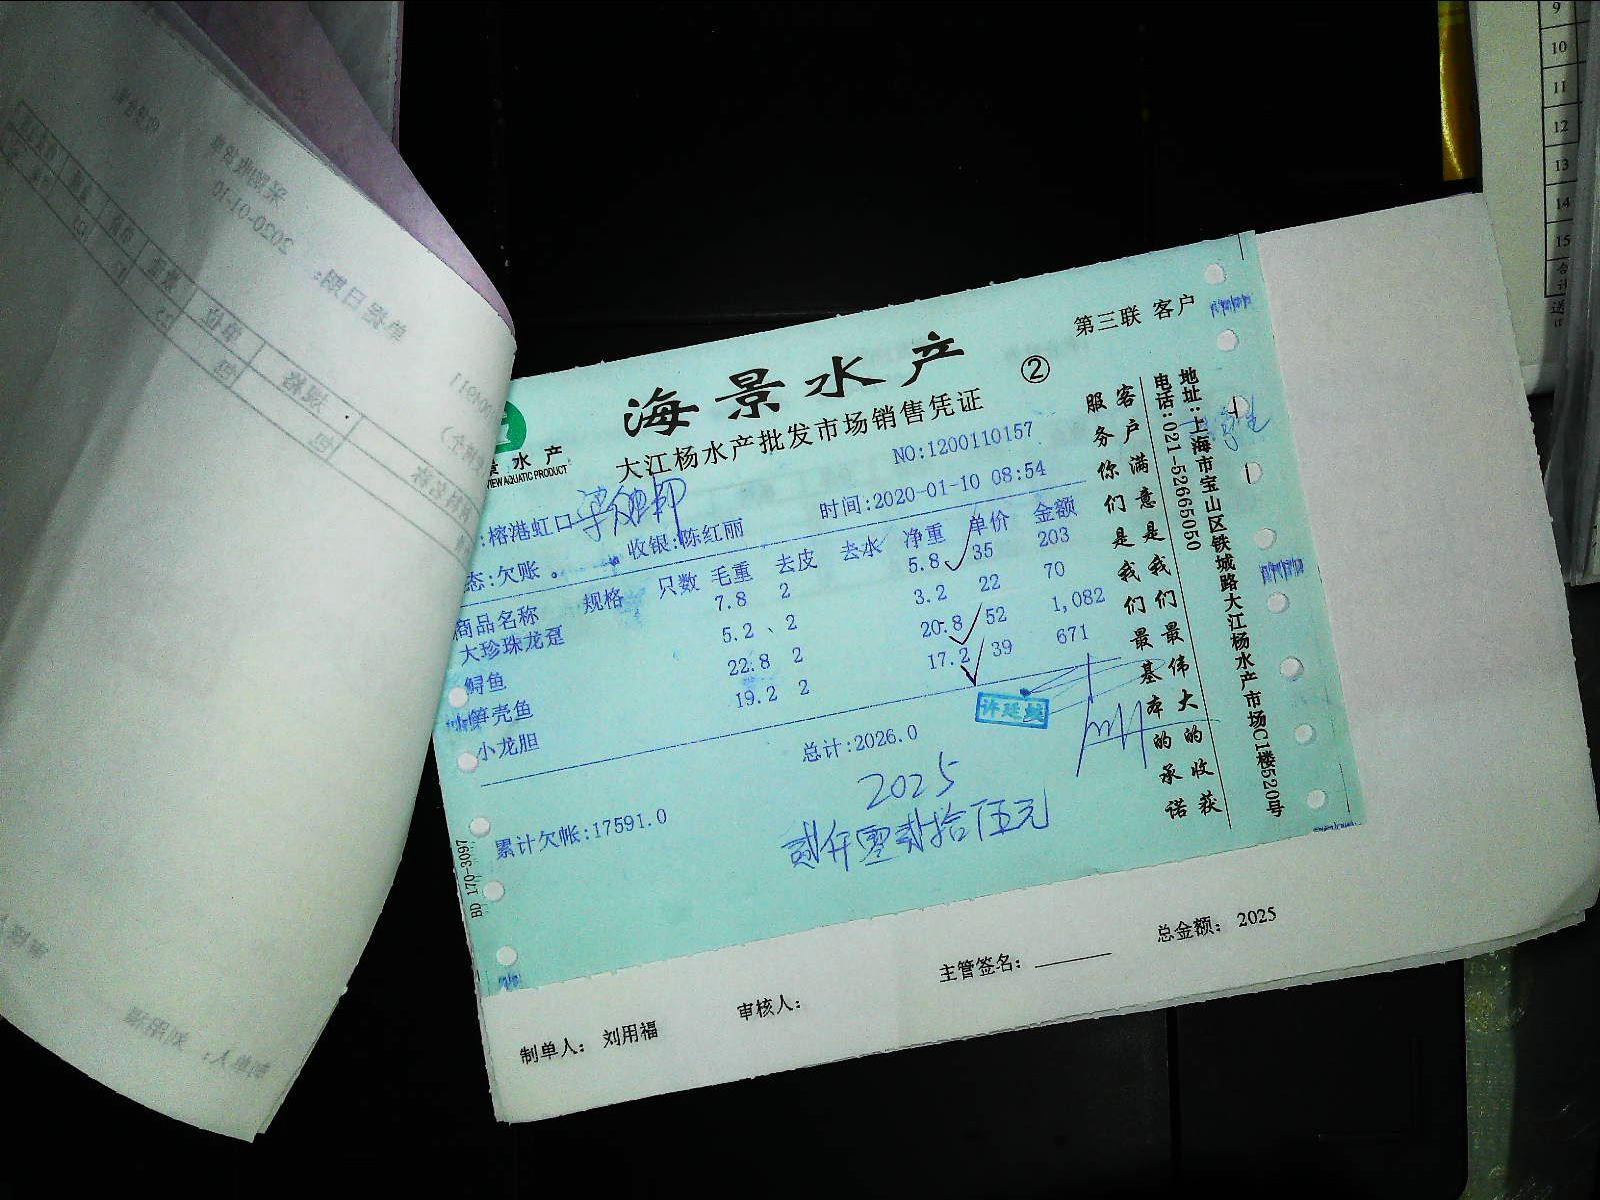 第三联 客户
海景水产
②
大江杨水产批发市场销售凭证
景水产
VIEW AQUATIC PRODUCT
NO:1200110157
:榕港虹口
时间:2020-01-10 08:54
态:欠账。
收银:陈红丽
商品名称 规格 只数 毛重 去皮 去水 净重 单价 金额
大珍珠龙趸 7.8 2 5.8 35 203
鲟鱼 5.2 、2 3.2 22 70
笋壳鱼 22.8 2 20.8 52 1,082
小龙胆 19.2 2 17.2 39 671
许廷
总计:2026.0
2025
贰仟零贰拾伍元
累计欠帐:17591.0
客户满意是我们最伟大的收获
服务你们是我们最基本的承诺
地址:上海市宝山区铁城路大江杨水产市场C1楼520号
电话:021-52665050
BD 170-3097
制单人: 刘用福
审核人:
主管签名:
总金额: 2025
9
10
11
12
13
14
15
合计
送
2020-01-10
单据日期:
规格
单位
数量
包
制单人: 刘用福